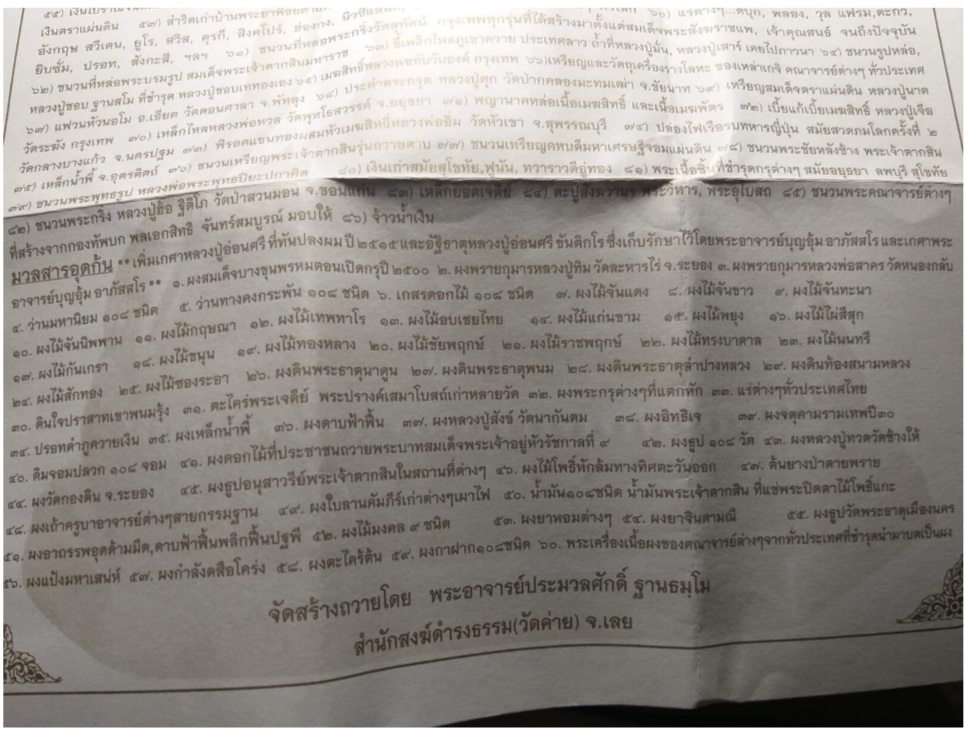 ๕๕) เงินโบราณ
เงินตราแผ่นดิน ๕๗) สำริดเก่าบ้านพระยาพิชัยดาบ ๖๐) แร่ต่างๆ..ดีบุก, พลอง, วุล แฟรม,ตะกั่ว,
อังกฤษ สวีเดน, ยูโร, สวิส, ตุรกี, สิงคโปร์, ฮ่องกง, นิวซีแลนด์
ยิบซั่ม, ปรอท, สังกะสี, ฯลฯ ๖๑) ชนวนที่หล่อพระกริ่งวัดสุทัศน์ กรุงเทพทุกรุ่นที่ได้สร้างมาตั้งแต่สมเด็จพระสังฆราชแพ, เจ้าคุณสนธ์ จนถึงปัจจุบัน
๖๒) ชนวนที่หล่อพระบรมรูป สมเด็จพระเจ้าตากสินมหาราช ๖๓) ขี้เหล็กไหลภูเขาควาย ประเทศลาว ถ้ำที่หลวงปู่มั่น, หลวงปู่เสาร์ เคยไปภาวนา ๖๔) ชนวนรูปหล่อ,
หลวงปู่ชอบ ฐานสโม ที่ชำรุด หลวงปู่ชอบเททองเอง ๖๕) เมฆสิทธิ์หลวงพ่อทับวัดอนงค์ กรุงเทพ ๖๖)เหรียญและวัตถุเครื่องรางโลหะ ของเหล่าเกจิ คณาจารย์ต่างๆ ทั่วประเทศ
๖๗) แฟวนหัวนอโม อ.เอียด วัดดอนศาลา จ.พัทลุง ๖๘) ประคำตระกรุด หลวงปู่ศุก วัดปากคลองมะขามเฒ่า จ.ชัยนาท ๖๙) เหรียญสมเด็จตราแผ่นดิน หลวงปู่นาค
วัดระฆัง กรุงเทพ ๗๐) เหล็กไหลหลวงพ่อหวล วัดพุทไธสวรรค์ จ.อยุธยา ๗๑) พญานาคหล่อเนื้อเมฆสิทธิ์ และเนื้อเมฆพัตร ๗๒) เบี้ยแก้เบี้ยเมฆสิทธิ์ หลวงปู่เจือ
วัดกลางบางแก้ว จ.นครปฐม ๗๓) พิรอดแขนทองผสมหัวเมฆสิทธิ์หลวงพ่ออิ่ม วัดหัวเขา จ.สุพรรณบุรี ๗๔) ปล่องไฟเรือรบทหารญี่ปุ่น สมัยสงคามโลกครั้งที่ ๒
๗๕) เหล็กน้ำพี้ จ.อุตรดิตถ์ ๗๖) ชนวนเหรียญพระเจ้าตากสินรุ่นถวายดาบ ๗๗) ชนวนเหรียญคทบดีมหาเศรษฐีจอมแผ่นดิน ๗๘) ชนวนพระชัยหลังช้าง พระเจ้าตากสิน
๗๙) ชนวนพระพุทธรูป หลวงพ่อพระพุทธปิยะปกาศิต ๘๐) เงินเก่าสมัยสุโขทัย,ฟูนัน, ทวาราวดีอู่ทอง ๘๑) พระเนื้อชินที่ชำรุดกรุต่างๆ สมัยอยุธยา ลพบุรี สุโขทัย
๘๒) ชนวนพระกริ่ง หลวงปู่ฮ้อ ฐิติโภ วัดป่าสวนมอน จ.ขอนแก่น ๘๓) เหล็กยอดเจดีย์ ๘๔) ตะปูสังฆวานร พระวิหาร, พระอุโบสถ ๘๕) ชนวนพระคณาจารย์ต่างๆ
ที่สร้างจากกองทัพบก พลเอกสิทธิ จันทร์สมบูรณ์ มอบให้ ๘๖) จ้าวน้ำเงิน
มวลสารอุดก้น **เพิ่มเกศาหลวงปู่อ่อนศรี ที่ทันปลงผม ปี ๒๕๑๕ และอัฐิธาตุหลวงปู่อ่อนศรี ขันติกโร ซึ่งเก็บรักษาไว้โดยพระอาจารย์บุญอุ้ม อาภัสสโร และเกศาพระ
อาจารย์บุญอุ้ม อาภัสสโร ** ๑. ผงสมเด็จบางขุนพรหมตอนเปิดกรุปี ๒๕๐๐ ๒. ผงพรายกุมารหลวงปู่ทิม วัดละหารไร่ จ.ระยอง ๓. ผงพรายกุมารหลวงพ่อสาคร วัดหนองกลับ
๔. ว่านมหานิยม ๑๐๘ ชนิด ๕. ว่านทางคงกระพัน ๑๐๘ ชนิด ๖. เกสรดอกไม้ ๑๐๘ ชนิด ๗. ผงไม้จันแดง ๘. ผงไม้จันขาว ๙. ผงไม้จันทะนา
๑๐. ผงไม้จันนิพพาน ๑๑. ผงไม้กฤษณา ๑๒. ผงไม้เทพทาโร ๑๓. ผงไม้อบเชยไทย ๑๔. ผงไม้แก่นขาม ๑๕. ผงไม้พยุง ๑๖. ผงไม้ไผ่สีสุก
๑๗. ผงไม้กันเกรา ๑๘. ผงไม้ขนุน ๑๙. ผงไม้ทองหลาง ๒๐. ผงไม้ชัยพฤกษ์ ๒๑. ผงไม้ราชพฤกษ์ ๒๒. ผงไม้ทรงบาดาล ๒๓. ผงไม้นนทรี
๒๔. ผงไม้สักทอง ๒๕. ผงไม้ซองระอา ๒๖. ผงดินพระธาตุนาดูน ๒๗. ผงดินพระธาตุพนม ๒๘. ผงดินพระธาตุลำปางหลวง ๒๙. ผงดินท้องสนามหลวง
๓๐. ดินใจปราสาทเขาพนมรุ้ง ๓๑. ตะไคร่พระเจดีย์ พระปรางค์เสมาโบสถ์เก่าหลายวัด ๓๒. ผงพระกรุต่างๆที่แตกหัก ๓๓. แร่ต่างๆทั่วประเทศไทย
๓๔. ปรอทดำภูควายเงิน ๓๕. ผงเหล็กน้ำพี้ ๓๖. ผงดาบฟ้าฟื้น ๓๗. ผงหลวงปู่สังข์ วัดนากันตม ๓๘. ผงอิทธิเจ ๓๙. ผงจตุคามรามเทพปี๓๐
๔๐. ดินจอมปลวก ๑๐๘ จอม ๔๑. ผงดอกไม้ที่ประชาชนถวายพระบาทสมเด็จพระเจ้าอยู่หัวรัชกาลที่ ๙ ๔๒. ผงธูป ๑๐๘ วัด ๔๓. ผงหลวงปู่ทวดวัดช้างให้
๔๔. ผงวัดกองดิน จ.ระยอง ๔๕. ผงธูปอนุสาวรีย์พระเจ้าตากสินในสถานที่ต่างๆ ๔๖. ผงไม้โพธิ์หักล้มทางทิศตะวันออก ๔๗. ต้นยางป่าตายพราย
๔๘. ผงเถ้าครูบาอาจารย์ต่างๆสายกรรมฐาน ๔๙. ผงใบลานคัมภีร์เก่าต่างๆเผาไฟ ๕๐. น้ำมัน๑๐๘ชนิด น้ำมันพระเจ้าตากสิน ที่แช่พระปิดตาไม้โพธิ์แกะ
๕๑. ผงอาถรรพอุดด้ามมีด,ดาบฟ้าฟื้นพลิกฟื้นปฐพี ๕๒. ผงไม้มงคล ๙ ชนิด ๕๓. ผงยาหอมต่างๆ ๕๔. ผงยาจินดามณี ๕๕. ผงธูปวัดพระธาตุเมืองนคร
๕๖. ผงแป้งมหาเสน่ห์ ๕๗. ผงกำลังเสือโคร่ง ๕๘. ผงตะไคร้ต้น ๕๙. ผงกาฝาก๑๐๘ชนิด ๖๐. พระเครื่องเนื้อผงของคณาจารย์ต่างๆจากทั่วประเทศที่ชำรุดนำมาบดเป็นผง
จัดสร้างถวายโดย พระอาจารย์ประมวลศักดิ์ ฐานธมฺโม
สำนักสงฆ์ดำรงธรรม(วัดค่าย) จ.เลย